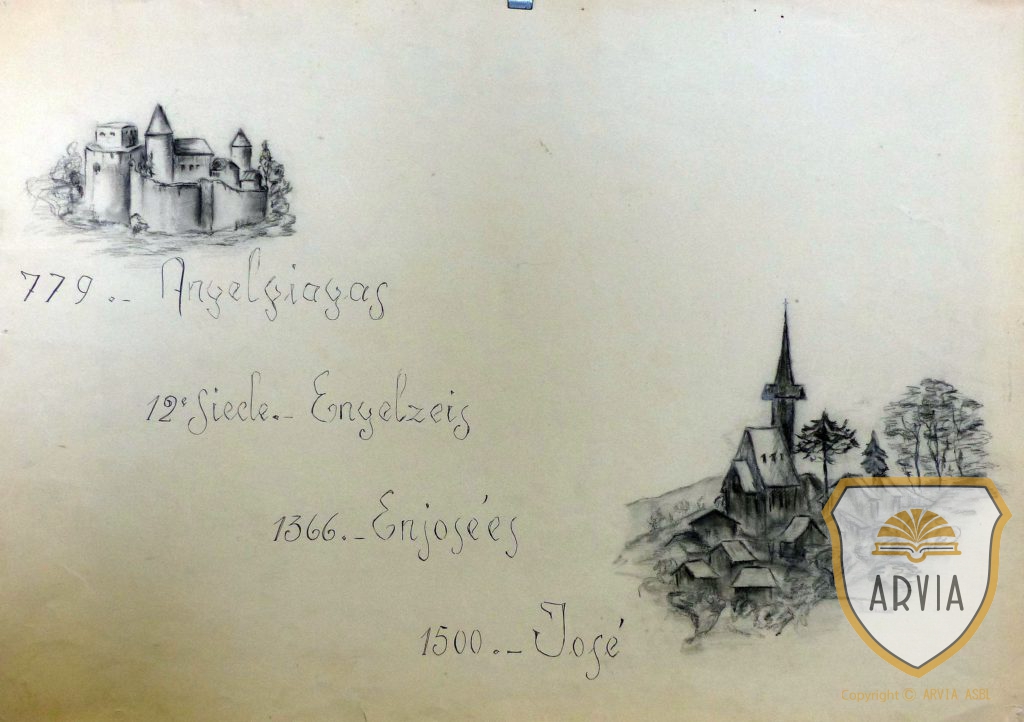 779.- Angelgiagas
12e Siecle.- Engelzeis
1366.- Enjosées
1500.- José
ARVIA
Copyright © ARVIA ASBL